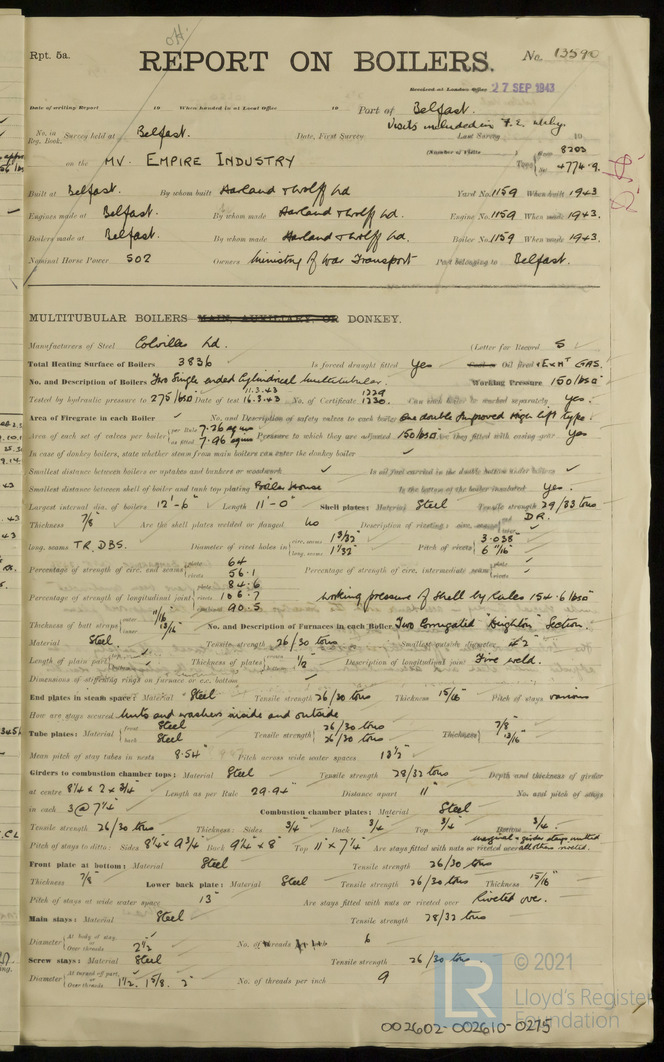 Rpt. 5a.
REPORT ON BOILERS.
No. 13590
Received at London Office 27 SEP 1943
Date of writing Report 19 When handed in at Local Office 19 Port of Belfast.
No. in Reg. Book. Survey held at Belfast. Date, First Survey Visits included in F.E. Last Survey 19
(Number of Visits
on the MV. EMPIRE INDUSTRY Tons Gross 8203 Net 4774.9.
Built at Belfast. By whom built Harland & Wolff Ld Yard No. 1159 When built 1943
Engines made at Belfast. By whom made Harland & Wolff Ld. Engine No. 1159 When made 1943.
Boilers made at Belfast. By whom made Harland & Wolff Ld. Boiler No. 1159 When made 1943.
Nominal Horse Power 502 Owners Ministry of War Transport Port belonging to Belfast.
MULTITUBULAR BOILERS MAIN, AUXILIARY, OR DONKEY.
Manufacturers of Steel Colvilles Ld. (Letter for Record S
Total Heating Surface of Boilers 3836 Is forced draught fitted Yes Oil fired & EXHT GAS.
No. and Description of Boilers Two Single ended Cylindrical Multitubular. Working Pressure 150 lbs□"
Tested by hydraulic pressure to 275 lbs□" Date of test 11.3.43 16.3.43 No. of Certificate 1229 1230. Can each boiler be worked separately Yes.
Area of Firegrate in each Boiler ✓ No. and Description of safety valves to each boiler One double Improved High lift type.
Area of each set of valves per boiler per Rule 7.26 as fitted 7.96 Pressure to which they are adjusted 150 lbs□" Are they fitted with easing gear Yes
In case of donkey boilers, state whether steam from main boilers can enter the donkey boiler ✓
Smallest distance between boilers or uptakes and bunkers or woodwork ✓ Is oil fuel carried in the double bottom under boilers ✓
Smallest distance between shell of boiler and tank top plating Boiler House Is the bottom of the boiler insulated Yes.
Largest internal dia. of boilers 12'-6" Length 11'-0" Shell plates: Material Steel Tensile strength 29/33 tons
Thickness 7/8" Are the shell plates welded or flanged No Description of riveting: circ. seams end D.R.
long. seams TR. DBS. Diameter of rivet holes in circ. seams 1 3/32" long. seams 1 1/32" Pitch of rivets 3.038" 6 11/16"
Percentage of strength of circ. end seams plate 64 rivets 56.1 Percentage of strength of circ. intermediate seam plate ✓ rivets ✓
Percentage of strength of longitudinal joint plate 84.6 rivets 106.7 combined 90.5 Working pressure of shell by rules 154.6 lbs□"
Thickness of butt straps outer 11/16" inner 13/16" No. and Description of Furnaces in each Boiler Two Corrugated "Deighton" Section.
Material Steel Tensile strength 26/30 tons Smallest outside diameter 42"
Length of plain part ✓ Thickness of plates 1/2" Description of longitudinal joint Fire weld.
Dimensions of stiffening rings on furnace or c.c. bottom ✓
End plates in steam space: Material Steel Tensile strength 26/30 tons Thickness 15/16" Pitch of stays various
How are stays secured Nuts and washers inside and outside
Tube plates: Material front Steel back Steel Tensile strength 26/30 tons 26/30 tons Thickness 7/8" 13/16"
Mean pitch of stay tubes in nests 8.54" Pitch across wide water spaces 13 1/2"
Girders to combustion chamber tops: Material Steel Tensile strength 28/32 tons Depth and thickness of girder
at centre 8 1/4 x 2 x 3/4" Length as per Rule 29.94" Distance apart 11" No. and pitch of stays
in each 3 @ 7 1/4" Combustion chamber plates: Material Steel
Tensile strength 26/30 tons Thickness: Sides 3/4" Back 3/4" Top 3/4" Bottom 3/4".
Pitch of stays to ditto: Sides 8 1/4" x 9 3/4" Back 9 1/4" x 8" Top 11" x 7 1/4" Are stays fitted with nuts or riveted over marginal & girder stays nutted all others riveted.
Front plate at bottom: Material Steel Tensile strength 26/30 tons
Thickness 7/8" Lower back plate: Material Steel Tensile strength 26/30 tons Thickness 15/16"
Pitch of stays at wide water space 13" Are stays fitted with nuts or riveted over Riveted over.
Main stays: Material Steel Tensile strength 28/32 tons
Diameter At body of stay, or Over threads 2 1/2" No. of threads per inch 6
Screw stays: Material Steel Tensile strength 26/30 tons
Diameter At turned off part, or Over threads 1 1/2". 1 5/8". 2" No. of threads per inch 9
© 2021
LR
Lloyd's Register
Foundation
002602-002610-0275